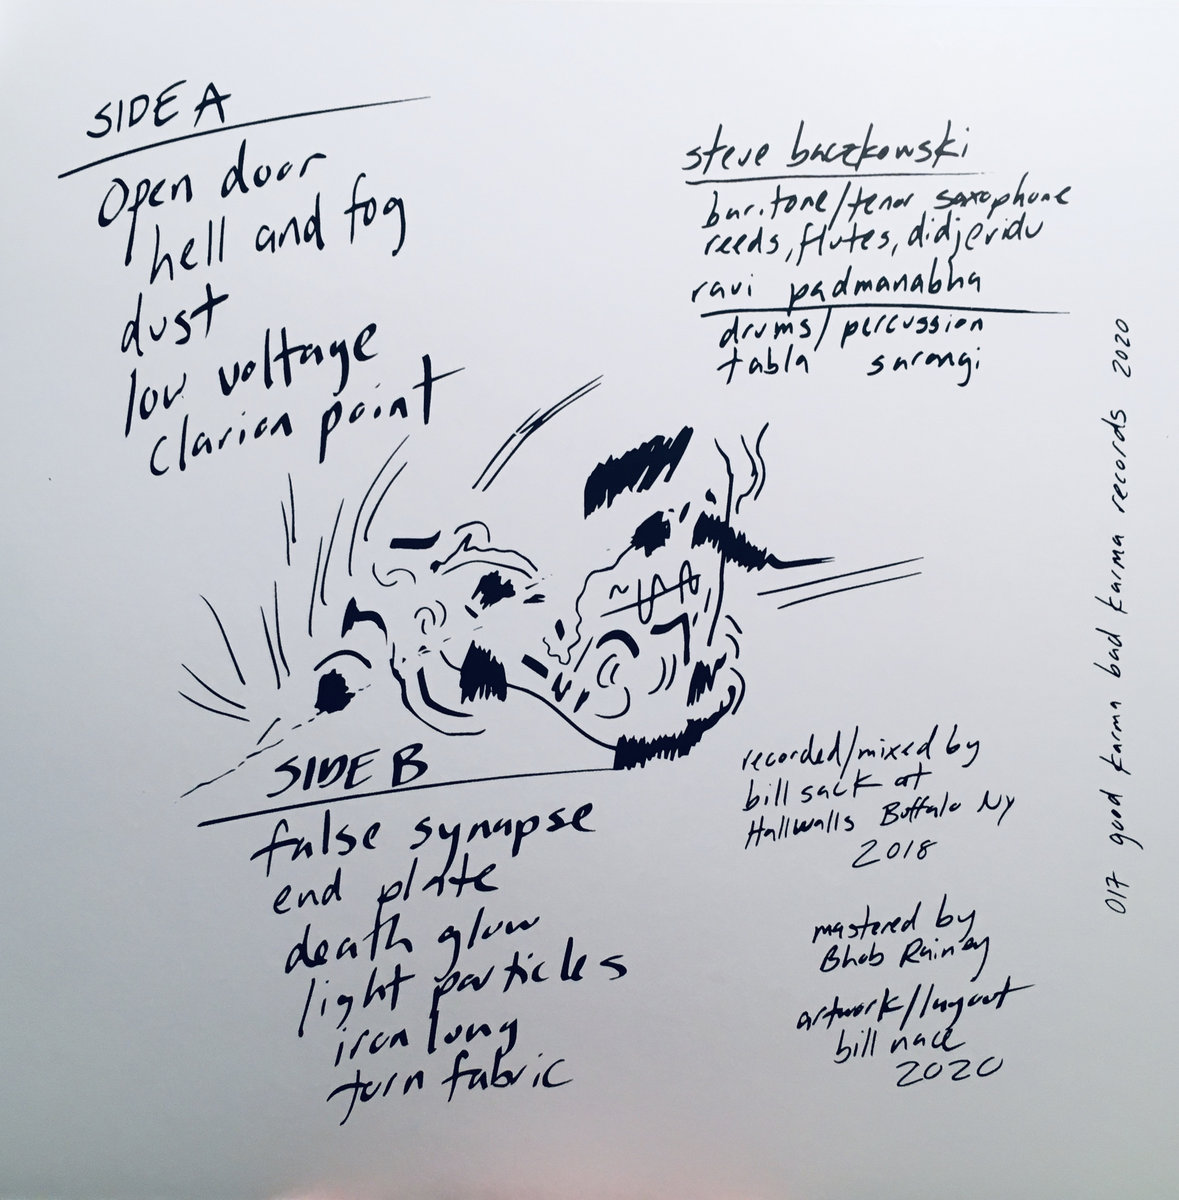 SIDE A
open door
hell and fog
dust
low voltage
clarion point
steve baczkowski
baritone/tenor saxophone
reeds, flutes, didjeridu
ravi padmanabha
drums/percussion
tabla sarangi
SIDE B
false synapse
end plate
death glow
light particles
iron lung
torn fabric
recorded/mixed by
bill sack at
Hallwalls Buffalo NY
2018
mastered by
Bhob Rainey
artwork/layout
bill nace
2020
017 good karma bad karma records 2020